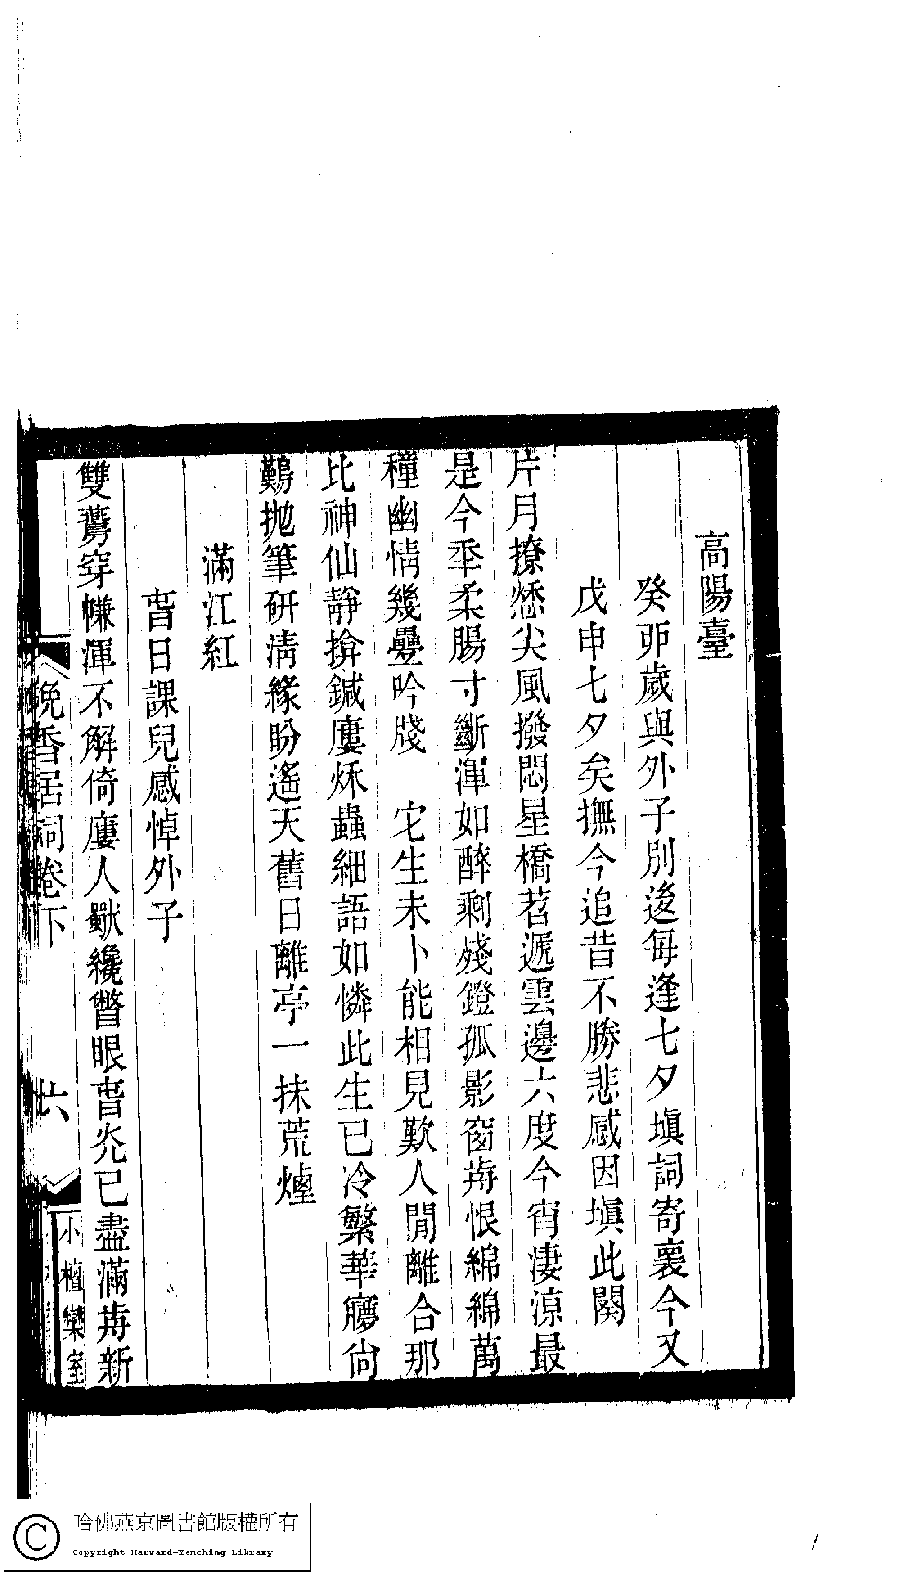 高陽臺
癸丣歲與外子別後每逢七夕塡詞寄裏今又
戊申七夕矣撫今追昔不勝悲感因塡此闋
片月撩愁尖風撥悶星橋苕遞雲邊六度今宵淒涼最
是今秊柔腸寸斷渾如醉剩殘鐙孤影窗歬恨綿綿萬
種幽情幾疊吟牋　它生未卜能相見歎人閒離合那
比神仙靜揜鍼廔秌蟲細語如憐此生已冷繁華廫尙
鷄抛筆硏淸緣盼遙天舊日離亭一抹荒煙
滿江紅
旾日課兒感悼外子
雙鷰穿㡘渾不解倚廔人歡纔瞥眼旾光已盡滿歬新
晚香居詞卷下
六
小檀欒室
哈佛燕京圖書館版權所有
Copyright Harvard-Yenching Library